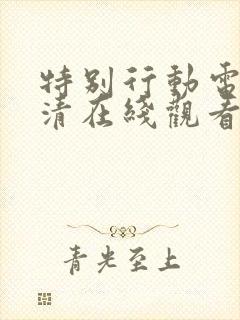 特别行動電
清在綫觀看
青光至上